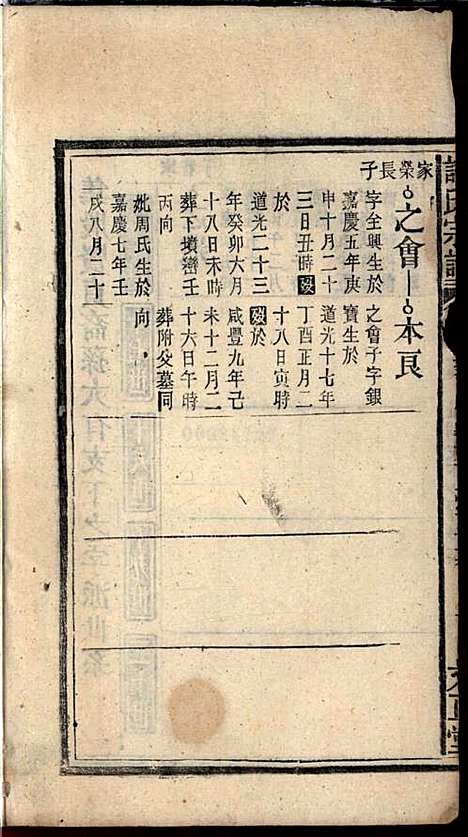 家榮長子
之會
字全興生於
嘉慶五年庚
申十月二十
三日丑時歿
於
道光二十三
年癸卯六月
十八日未時
葬下墳巒壬
丙向
妣周氏生於
嘉慶七年壬
戌八月二十
本良
之會子字銀
寶生於
道光十七年
丁酉正月二
十八日寅時
歿於
咸豐九年己
未十二月二
十六日午時
葬附父墓同
向
氏宗譜